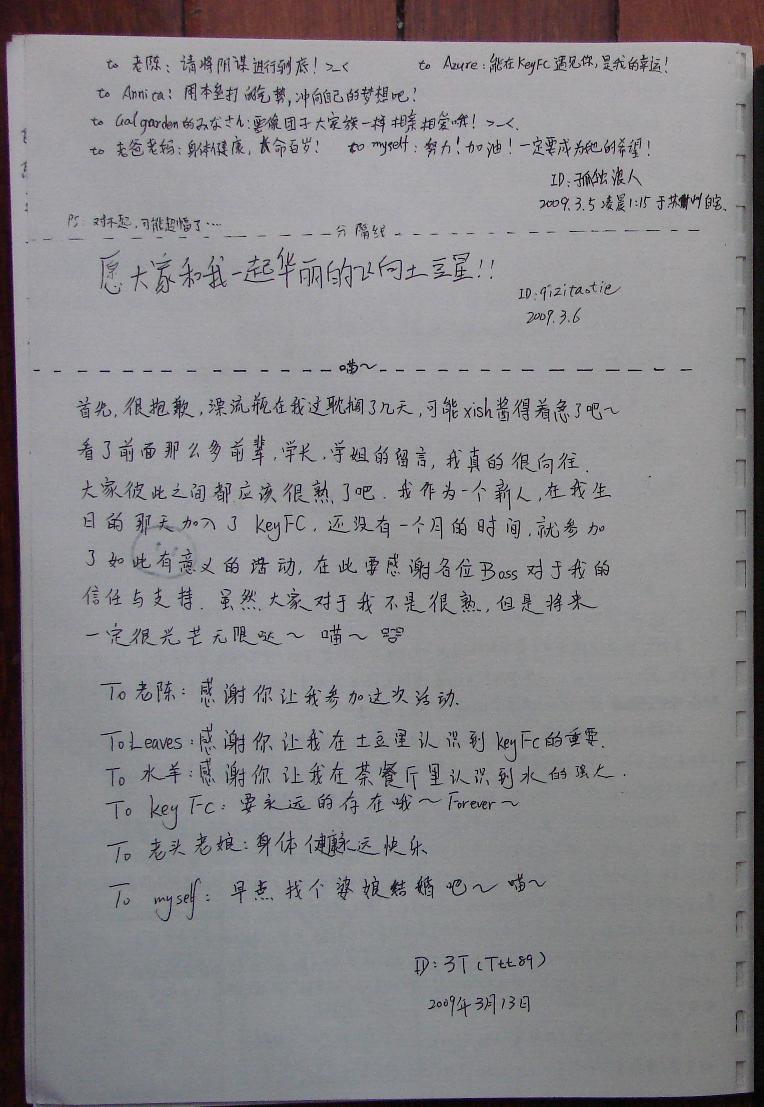 to 老陈：请将阴谋进行到底！>_<   to Azure：能在KeyFC遇见你，是我的幸运！
to Annita：用本垒打的气势，冲向自己的梦想吧！
to Galgarden的みなさん：要像团子大家族一样相亲相爱哦！>_<
to 老爸老妈：身体健康，长命百岁！ to myself：努力！加油！一定要成为她的希望！
ID：孤独浪人
2009.3.5 凌晨1:15 于苏州自宅
PS：对不起，可能超幅了…
分隔线
愿大家和我一起华丽的飞向土豆星！！
ID：qizitaotie
2009.3.6
喵～
首先，很抱歉，漂流瓶在我这耽搁了几天，可能xish酱得着急了吧～
看了前面那么多前辈，学长，学姐的留言，我真的很向往．
大家彼此之间都应该很熟了吧．我作为一个新人，在我生
日的那天加入了KeyFC，还没有一个月的时间，就参加
了如此有意义的活动，在此要感谢各位Boss对于我的
信任与支持．虽然大家对于我不是很熟，但是将来
一定很光芒无限哒～ 喵～
To 老陈：感谢你让我参加这次活动．
To Leaves：感谢你让我在土豆里认识到keyFc的重要．
To 水羊：感谢你让我在茶餐厅里认识到水的强大．
To key Fc：要永远的存在哦～Forever～
To 老头老娘：身体健康永远快乐
To myself：早点找个婆娘结婚吧～ 喵～
ID：3T（Ttt89）
2009年3月13日